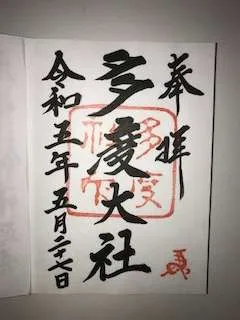 奉拝
多度大社
令和五年五月二十七日